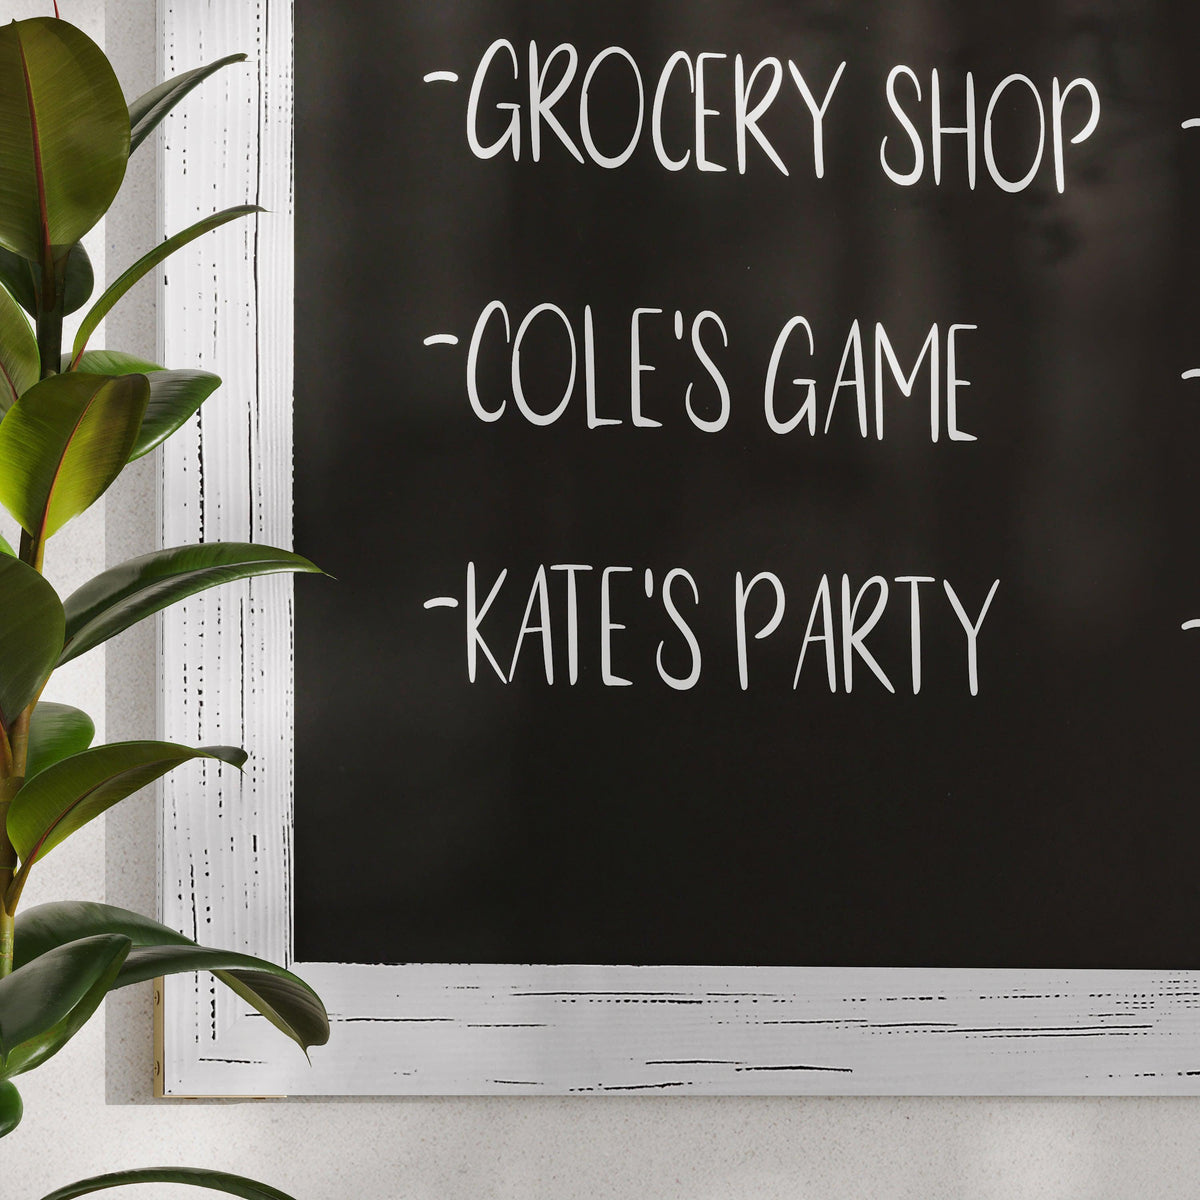 -GROCERY SHOP
-COLE'S GAME
-KATE'S PARTY